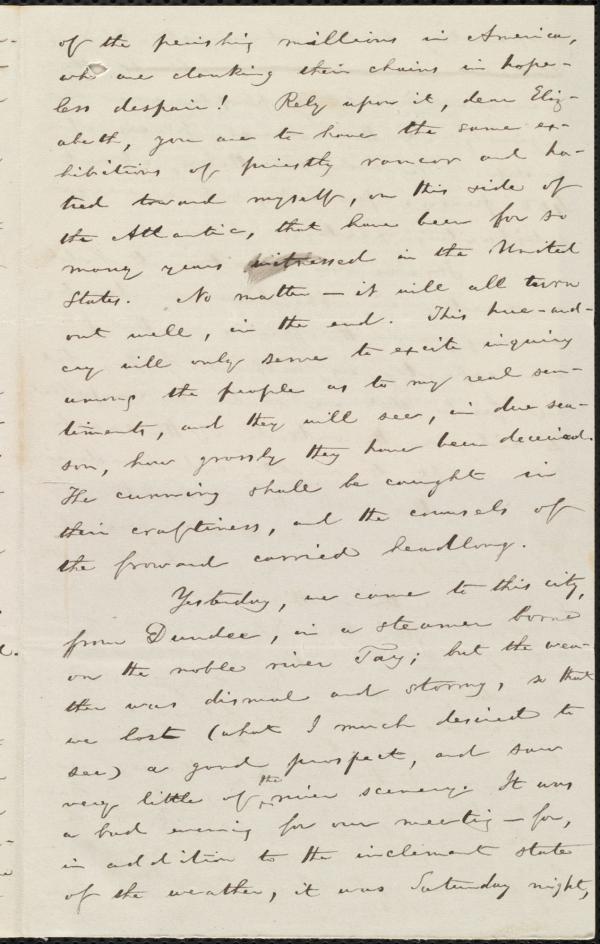 of the perishing millions in America,
who are clanking their chains in hope-
less despair! Rely upon it, dear Eliz-
abeth, you are to have the same ex-
hibitions of priestly rancor and ha-
tred toward myself, on this side of
the Atlantic, that have been for so
many years witnessed in the United
States. No matter — it will all turn
out well, in the end. This hue-and-
cry will only serve to excite inquiry
among the people as to my real sen-
timents, and they will see, in due sea-
son, how grossly they have been deceived.
The cunning shall be caught in
their craftiness, and the counsels of
the froward carried headlong.
Yesterday, we came to this city,
from Dundee, in a steamer borne
on the noble river Tay; but the wea-
ther was dismal and stormy, so that
we lost (what I much desired to
see) a good prospect, and saw
very little of the river scenery. It was
a bad evening for our meeting — for,
in addition to the inclement state
of the weather, it was Saturday night,